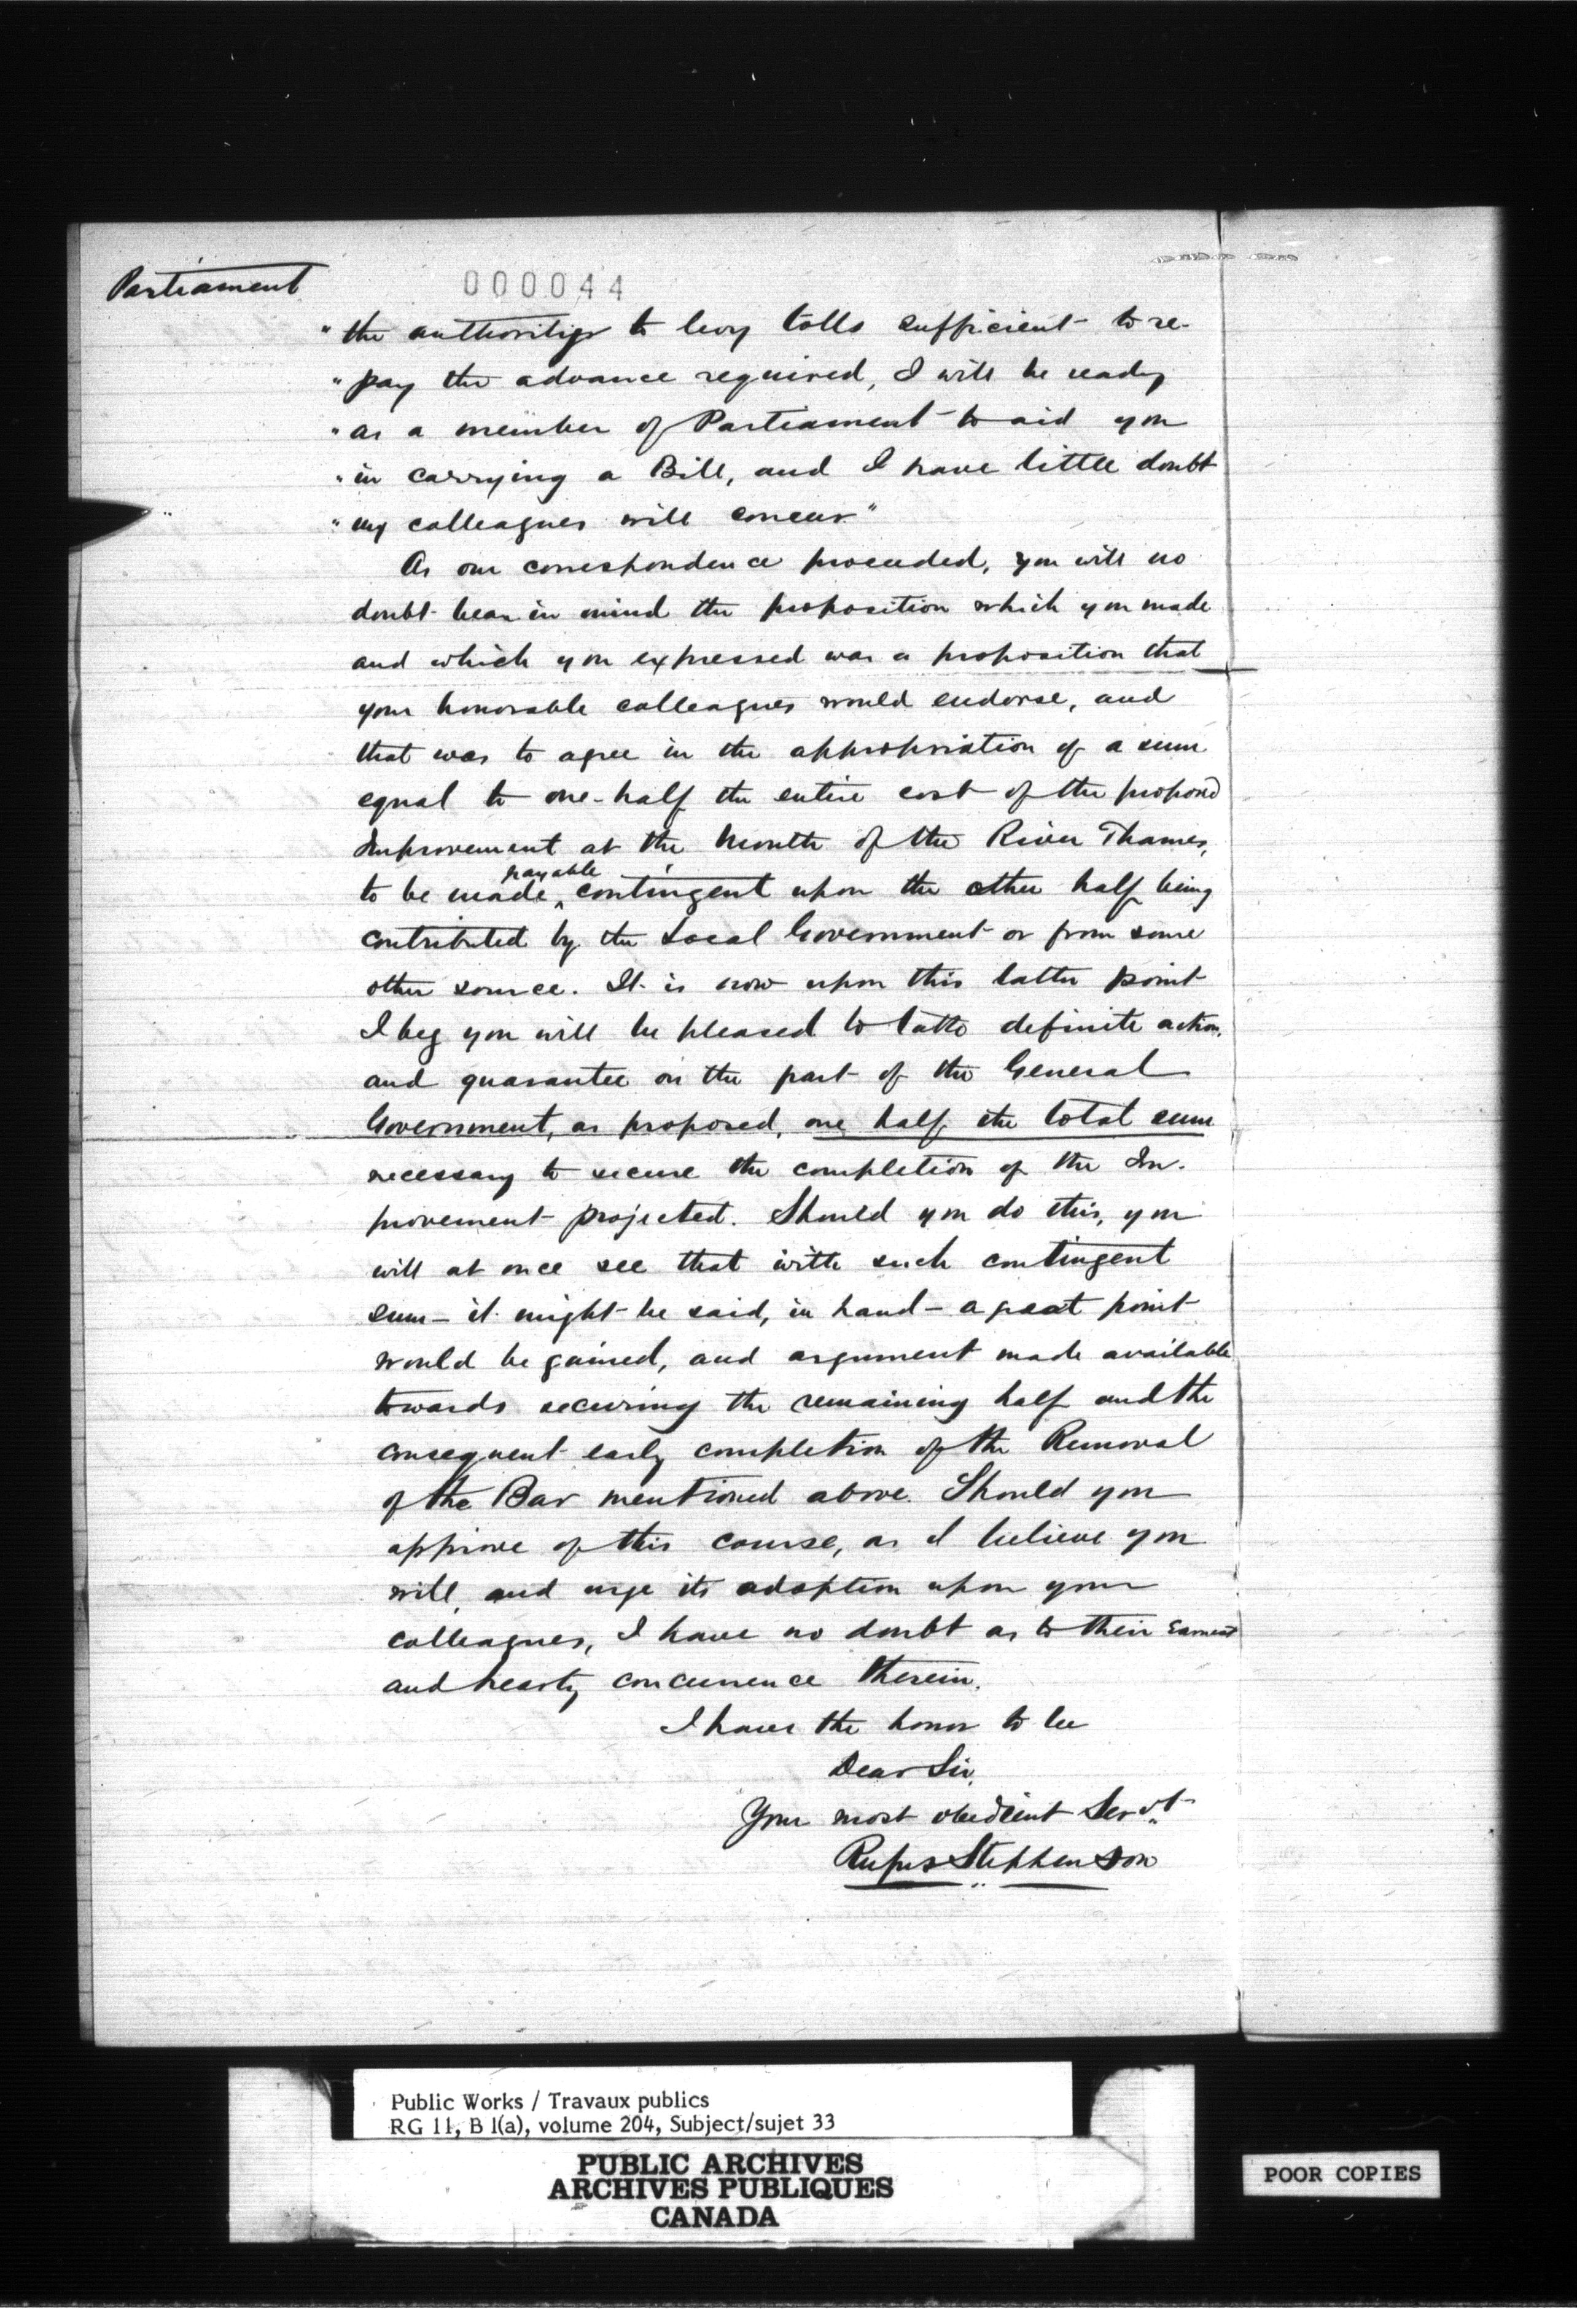 Parliament
000044
"the authority to levy tolls sufficient to re-
"pay the advance required, I will be ready
"as a member of Parliament to aid you
"in carrying a Bill, and I have little doubt
"my colleagues will concur"
As our correspondence proceeded, you will no
doubt bear in mind the proposition which you made
and which you expressed was a proposition that
your honorable colleagues would endorse, and
that was to agree in the appropriation of a sum
equal to one-half the entire cost of the proposed
Improvement at the Mouth of the River Thames,
payable
to be made ‸ contingent upon the other half being
contributed by the Local Government or from some
other source. It is now upon this latter point
I beg you will be pleased to take definite action,
and guarantee on the part of the General
Government, as proposed, one half the total sum
necessary to secure the completion of the Im-
provement projected. Should you do this, you
will at once see that with such contingent
sum - it might be said, in hand - a great point
would be gained, and argument made available
towards securing the remaining half and the
consequent early completion of the Removal
of the Bar mentioned above. Should you
approve of this course, as I believe you
will, and urge its adoption upon your
colleagues, I have no doubt as to their Earnest
and hearty concurrence therein.
I have the honor to be
Dear Sir,
Your most obedient Servt
Rufus Stephenson
Public Works / Travaux publics
RG 11, B 1(a), volume 204, Subject/sujet 33
PUBLIC ARCHIVES
ARCHIVES PUBLIQUES
CANADA
POOR COPIES